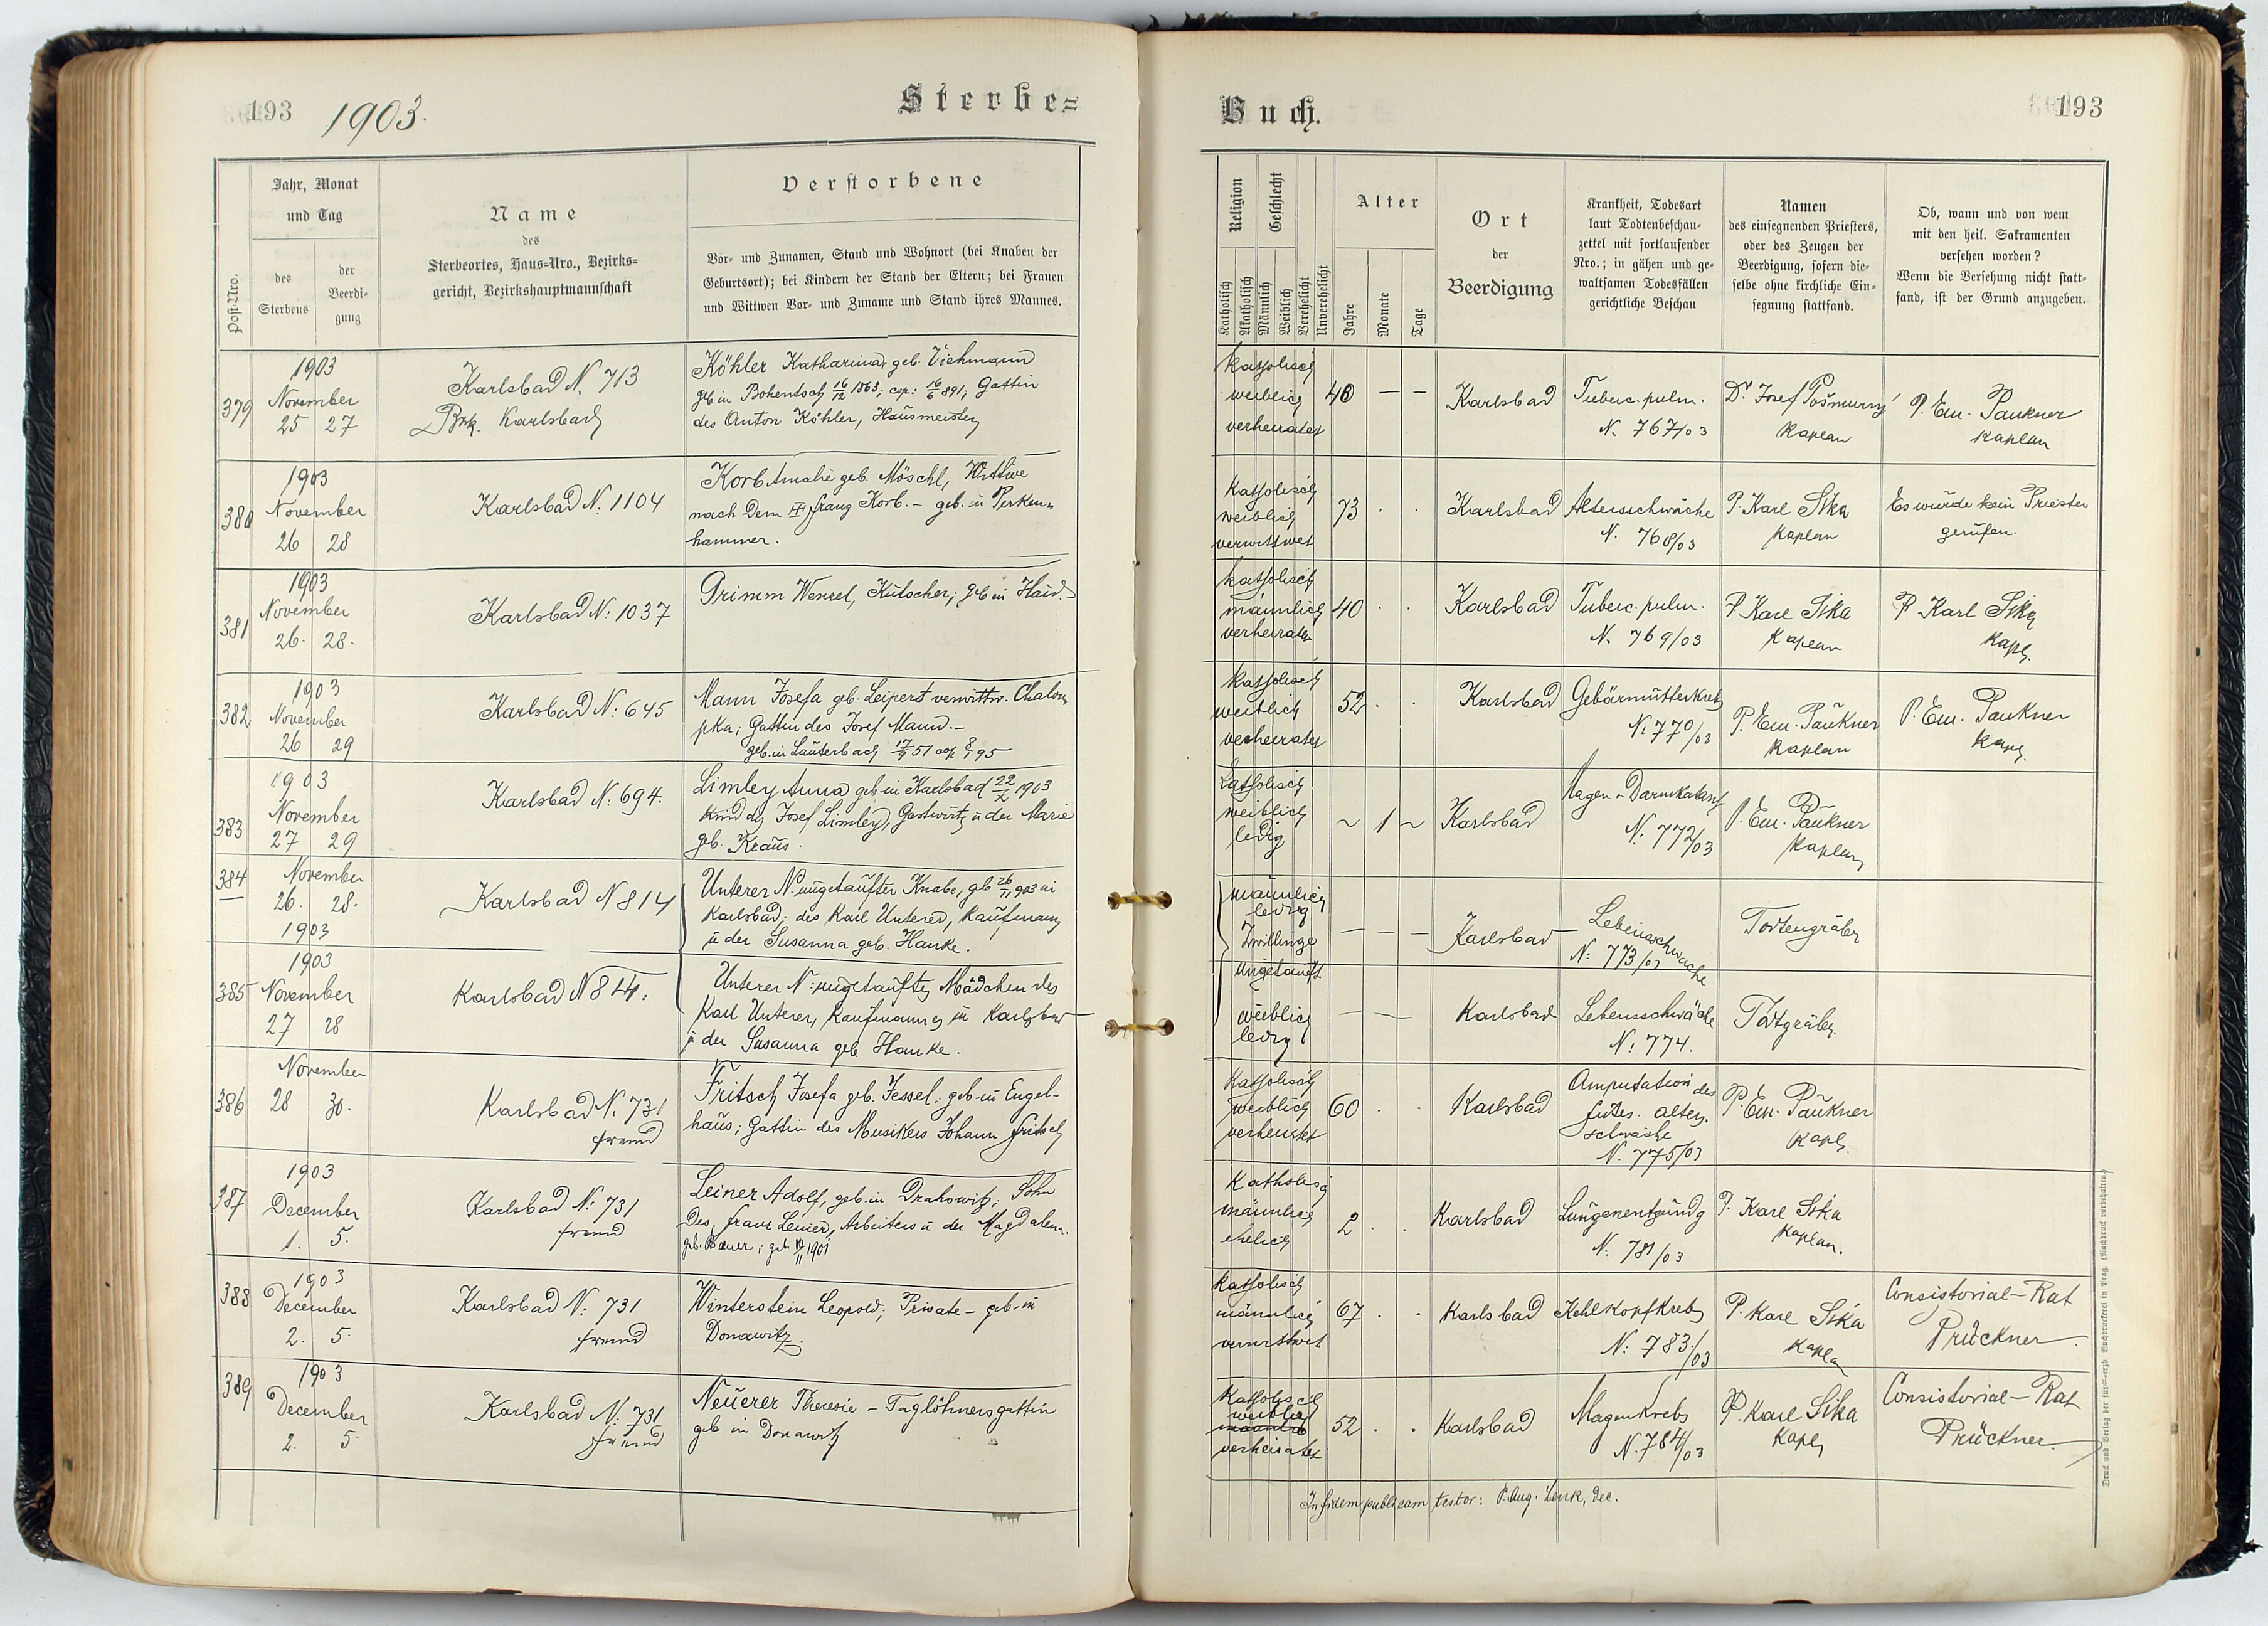 193 1903.
Sterbe=
Jahr, Monat
und Tag
des
Sterbens
der
Beerdi=
gung
Post-Nro.
Name
des
Sterbeortes, Haus-Nro., Bezirks=
gericht, Bezirkshauptmannschaft
Verstorbene
Vor- und Zunamen, Stand und Wohnort (bei Knaben der
Geburtsort); bei Kindern der Stand der Eltern; bei Frauen
und Wittwen Vor- und Zuname und Stand ihres Mannes.
379
1903
November
25 27
Karlsbad N. 713
Bzk. Karlsbad
Köhler Katharina, geb. Viehmann
geb in Bohentsch 16/12 1863; cop: 16/6 891; Gattin
des Anton Köhler, Hausmeister
380
1903
November
26 28
Karlsbad N: 1104
Korb Amalie geb. Möschl, Wittwe
nach dem Franz Korb. – geb. in Perken=
hammer.
381
1903
November
26. 28.
Karlsbad N: 1037
Grimm Wenzel, Kutscher; geb in Haid.
382
1903
November
26 29
Karlsbad N: 645
Mann Josefa geb. Leipert verwittw. Chalou
pka; Gattin des Josef Mann. –
geb. in Lauterbach 51 cop 95
383
1903
November
27 29
Karlsbad N: 694.
Limley Anna geb in Karlsbad 1903
Kind des Josef Limley, Gastwirt u der Marie
geb. Kraus.
384
November
26. 28.
1903
Karlsbad N 814
Unterer N. ungetaufter Knabe, geb 26/11 903 in
Karlsbad; des Karl Unterer, Kaufmann
u der Susanna geb. Hanke.
385
1903
November
27 28
Karlsbad N 814.
Unterer N: ungetauftes Mädchen des
Karl Unterer, Kaufmannes in Karlsbad
u der Susanna geb. Hanke.
386
November
28 30.
Karlsbad N. 731
fremd
Fritsch Josefa geb. Jessel. geb. in Engel-
haus; Gattin des Musikers Johann Fritsch
387
1903
December
1. 5.
Karlsbad N: 731
fremd
Leiner Adolf, geb. in Drahowitz; Sohn
des Franz Leiner, Arbeiters u der Magdalena
geb. Bauer; geb. 1901
388
1903
December
2. 5.
Karlsbad N: 731
fremd
Winterstein Leopold; Private – geb. in
Donawitz.
389
1903
December
2. 5
Karlsbad N: 731
fremd
Neuerer Theresie – Taglöhnersgattin
geb in Donawitz
Buch.
193
Religion
Geschlecht
Katholisch
Akatholisch
Männlich
Weiblich
Verehelicht
Unverehelicht
Alter
Jahre
Monate
Tage
Ort
der
Beerdigung
Krankheit, Todesart
laut Todtenbeschau-
zettel mit fortlaufender
Nro.; in gähen und ge=
waltsamen Todesfällen
gerichtliche Beschau
Namen
des einsegnenden Priesters,
oder des Zeugen der
Beerdigung, sofern die=
selbe ohne kirchliche Ein=
segnung stattfand.
Ob, wann und von wem
mit den heil. Sakramenten
versehen worden?
Wenn die Versehung nicht statt=
fand, ist der Grund anzugeben.
katholisch
weiblich
verheiratet
40 – –
Karlsbad
Tuberc. pulm.
N. 767/03
Dr Josef Pošmurný
Kaplan
P. Em. Paukner
Kaplan
katholisch
weiblich
verwittwet
73 . .
Karlsbad
Altersschwäche
N. 768/03
P. Karl Sika
Kaplan
Es wurde kein Priester
gerufen.
katholisch
männlich
verheiratet
40 . .
Karlsbad
Tuberc. pulm.
N. 769/03
P Karl Sika
Kaplan
P Karl Sika
Kapl.
katholisch
weiblich
verheiratet
52 . .
Karlsbad
Gebärmutterkrebs
N: 770/03
P. Em. Paukner
Kaplan
P. Em. Paukner
Kapl.
katholisch
weiblich
ledig
~ 1 ~
Karlsbad
Magen-Darmkatarrh
N: 772/03
P. Em. Paukner
Kaplan
männlich
ledig
Zwillinge
ungetauft
– – –
Karlsbad
Lebensschwäche
N: 773/03
Todtengräber
weiblich
ledig
– – –
Karlsbad
Lebensschwäche
N: 774.
Todtgräber
katholisch
weiblich
verheiratet
60 . .
Karlsbad
Amputation des
Fußes. Alters.
schwäche
N. 775/03
P. Em. Paukner
Kapl.
Katholisch
männlich
ehelich
2 . .
Karlsbad
Lungenentzündg
N: 781/03
P. Karl Sika
Kaplan.
katholisch
männlich
verwittwet
67 . .
Karlsbad
Kehlkopfkrebs
N: 783/03
P. Karl Sika
Kaplan
Consistorial-Rat
Prückner.
Katholisch
weiblich
männlich
verheiratet
52 . .
Karlsbad
Magenkrebs
N. 784/03
P. Karl Sika
Kapl
Consistorial-Rat
Prückner.
In fidem publicam testor: P. Aug. Lenk, Dec.
Druck und Verlag der fürst=erzb. Buchdruckerei in Prag. (Nachdruck vorbehalten.)